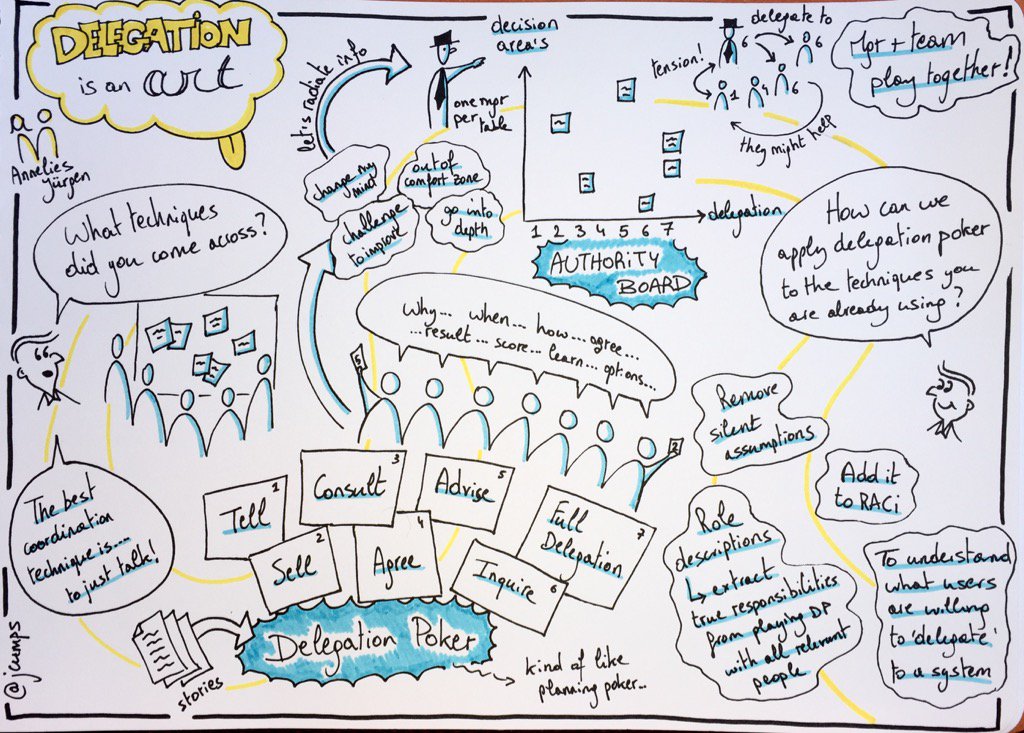 DELEGATION
is an art
Annelies
Jürgen
What techniques
did you come across?
The best
coordination
technique is....
to just talk!
@jcumps
let's radiate info
change my
mind
out of
comfort zone
challenge
to import
go into
depth
one mgr
per
table
decision
area's
delegation
1 2 3 4 5 6 7
AUTHORITY
BOARD
delegate to
tension!
6
6
1
4
6
they might help
Mgr + team
play together!
Why... when... how... agree...
...result... score... learn... options...
5
2
1
Tell
2
Sell
3
Consult
4
Agree
5
Advise
6
Inquire
7
Full
Delegation
Delegation Poker
stories
kind of like
planning poker...
How can we
apply delegation poker
to the techniques you
are already using?
Remove
silent
assumptions
Add it
to RACi
Role
descriptions
↳ extract
true responsibilities
from playing DP
with all relevant
people
To understand
what users
are willing
to 'delegate'
to a system